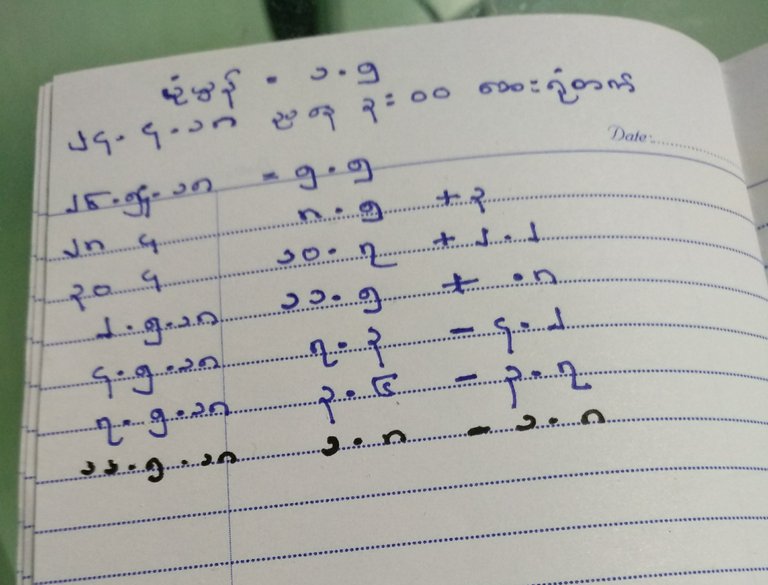 ပုံမှန် = ၁.၅
၂၄.၄.၁၈ ညနေ ၃း၀၀ ဆေးရုံတက်
Date:
၂၆.၄.၁၈ = ၅.၅
၂၈ ၄ ၈.၅ +၃
၃၀ ၄ ၁၀.၇ +၂.၂
၂.၅.၁၈ ၁၁.၅ + .၈
၄.၅.၁၈ ၇.၃ - ၄.၂
၇.၅.၁၈ ၃.၆ - ၃.၇
၁၁.၅.၁၈ ၁.၈ - ၁.၈